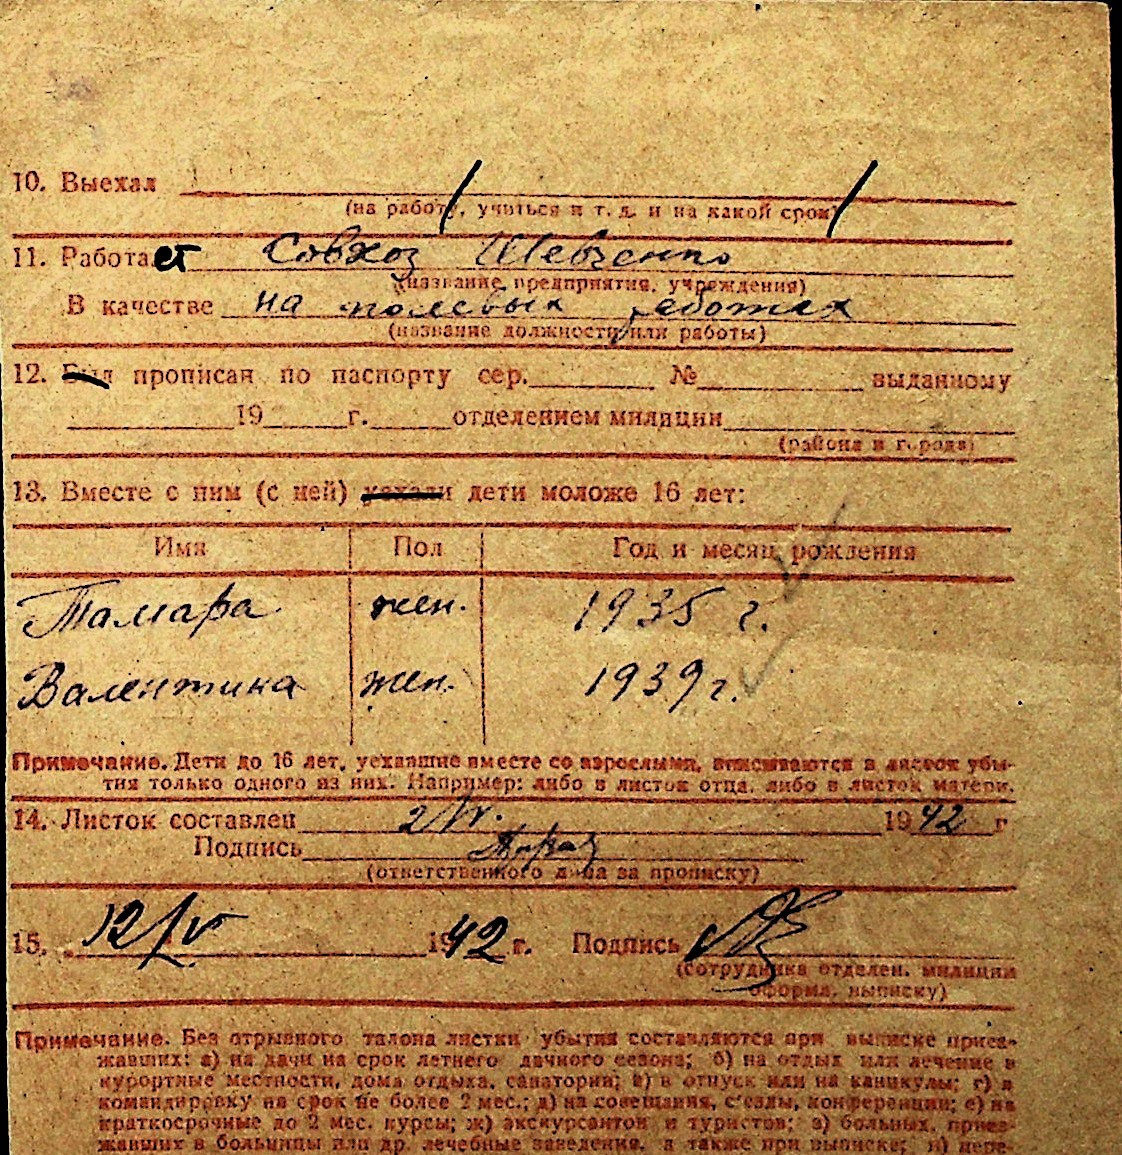 10. Выехал
(на работу, учиться и т. д. и на какой срок)
11. Работает Совхоз Шевченко
(название предприятия, учреждения)
В качестве на полевых работах
(название должности или работы)
12. Был прописан по паспорту сер. № выданному
19 г. отделением милиции
(района и города)
13. Вместе с ним (с ней) уехали дети моложе 16 лет:
Имя Пол Год и месяц рождения
Тамара жен. 1935 г.
Валентина жен. 1939 г.
Примечание. Дети до 16 лет, уехавшие вместе со взрослыми, вписываются в листок убы-
тия только одного из них. Например: либо в листок отца, либо в листок матери.
14. Листок составлен 2/IV. 1942 г
Подпись
(ответственного лица за прописку)
15. 12/V 1942 г. Подпись
(сотрудника отделен. милиции
оформл. выписку)
Примечание. Без отрывного талона листки убытия составляются при выписке приез-
жавших: а) на дачи на срок летнего дачного сезона; б) на отдых или лечение в
курортные местности, дома отдыха, санатории; в) в отпуск или на каникулы; г) в
командировку на срок не более 2 мес.; д) на совещания, съезды, конференции; е) на
краткосрочные до 2 мес. курсы; ж) экскурсантов и туристов; з) больных, приез-
жавших в больницы или др. лечебные заведения, а также при выписке; и) пере-